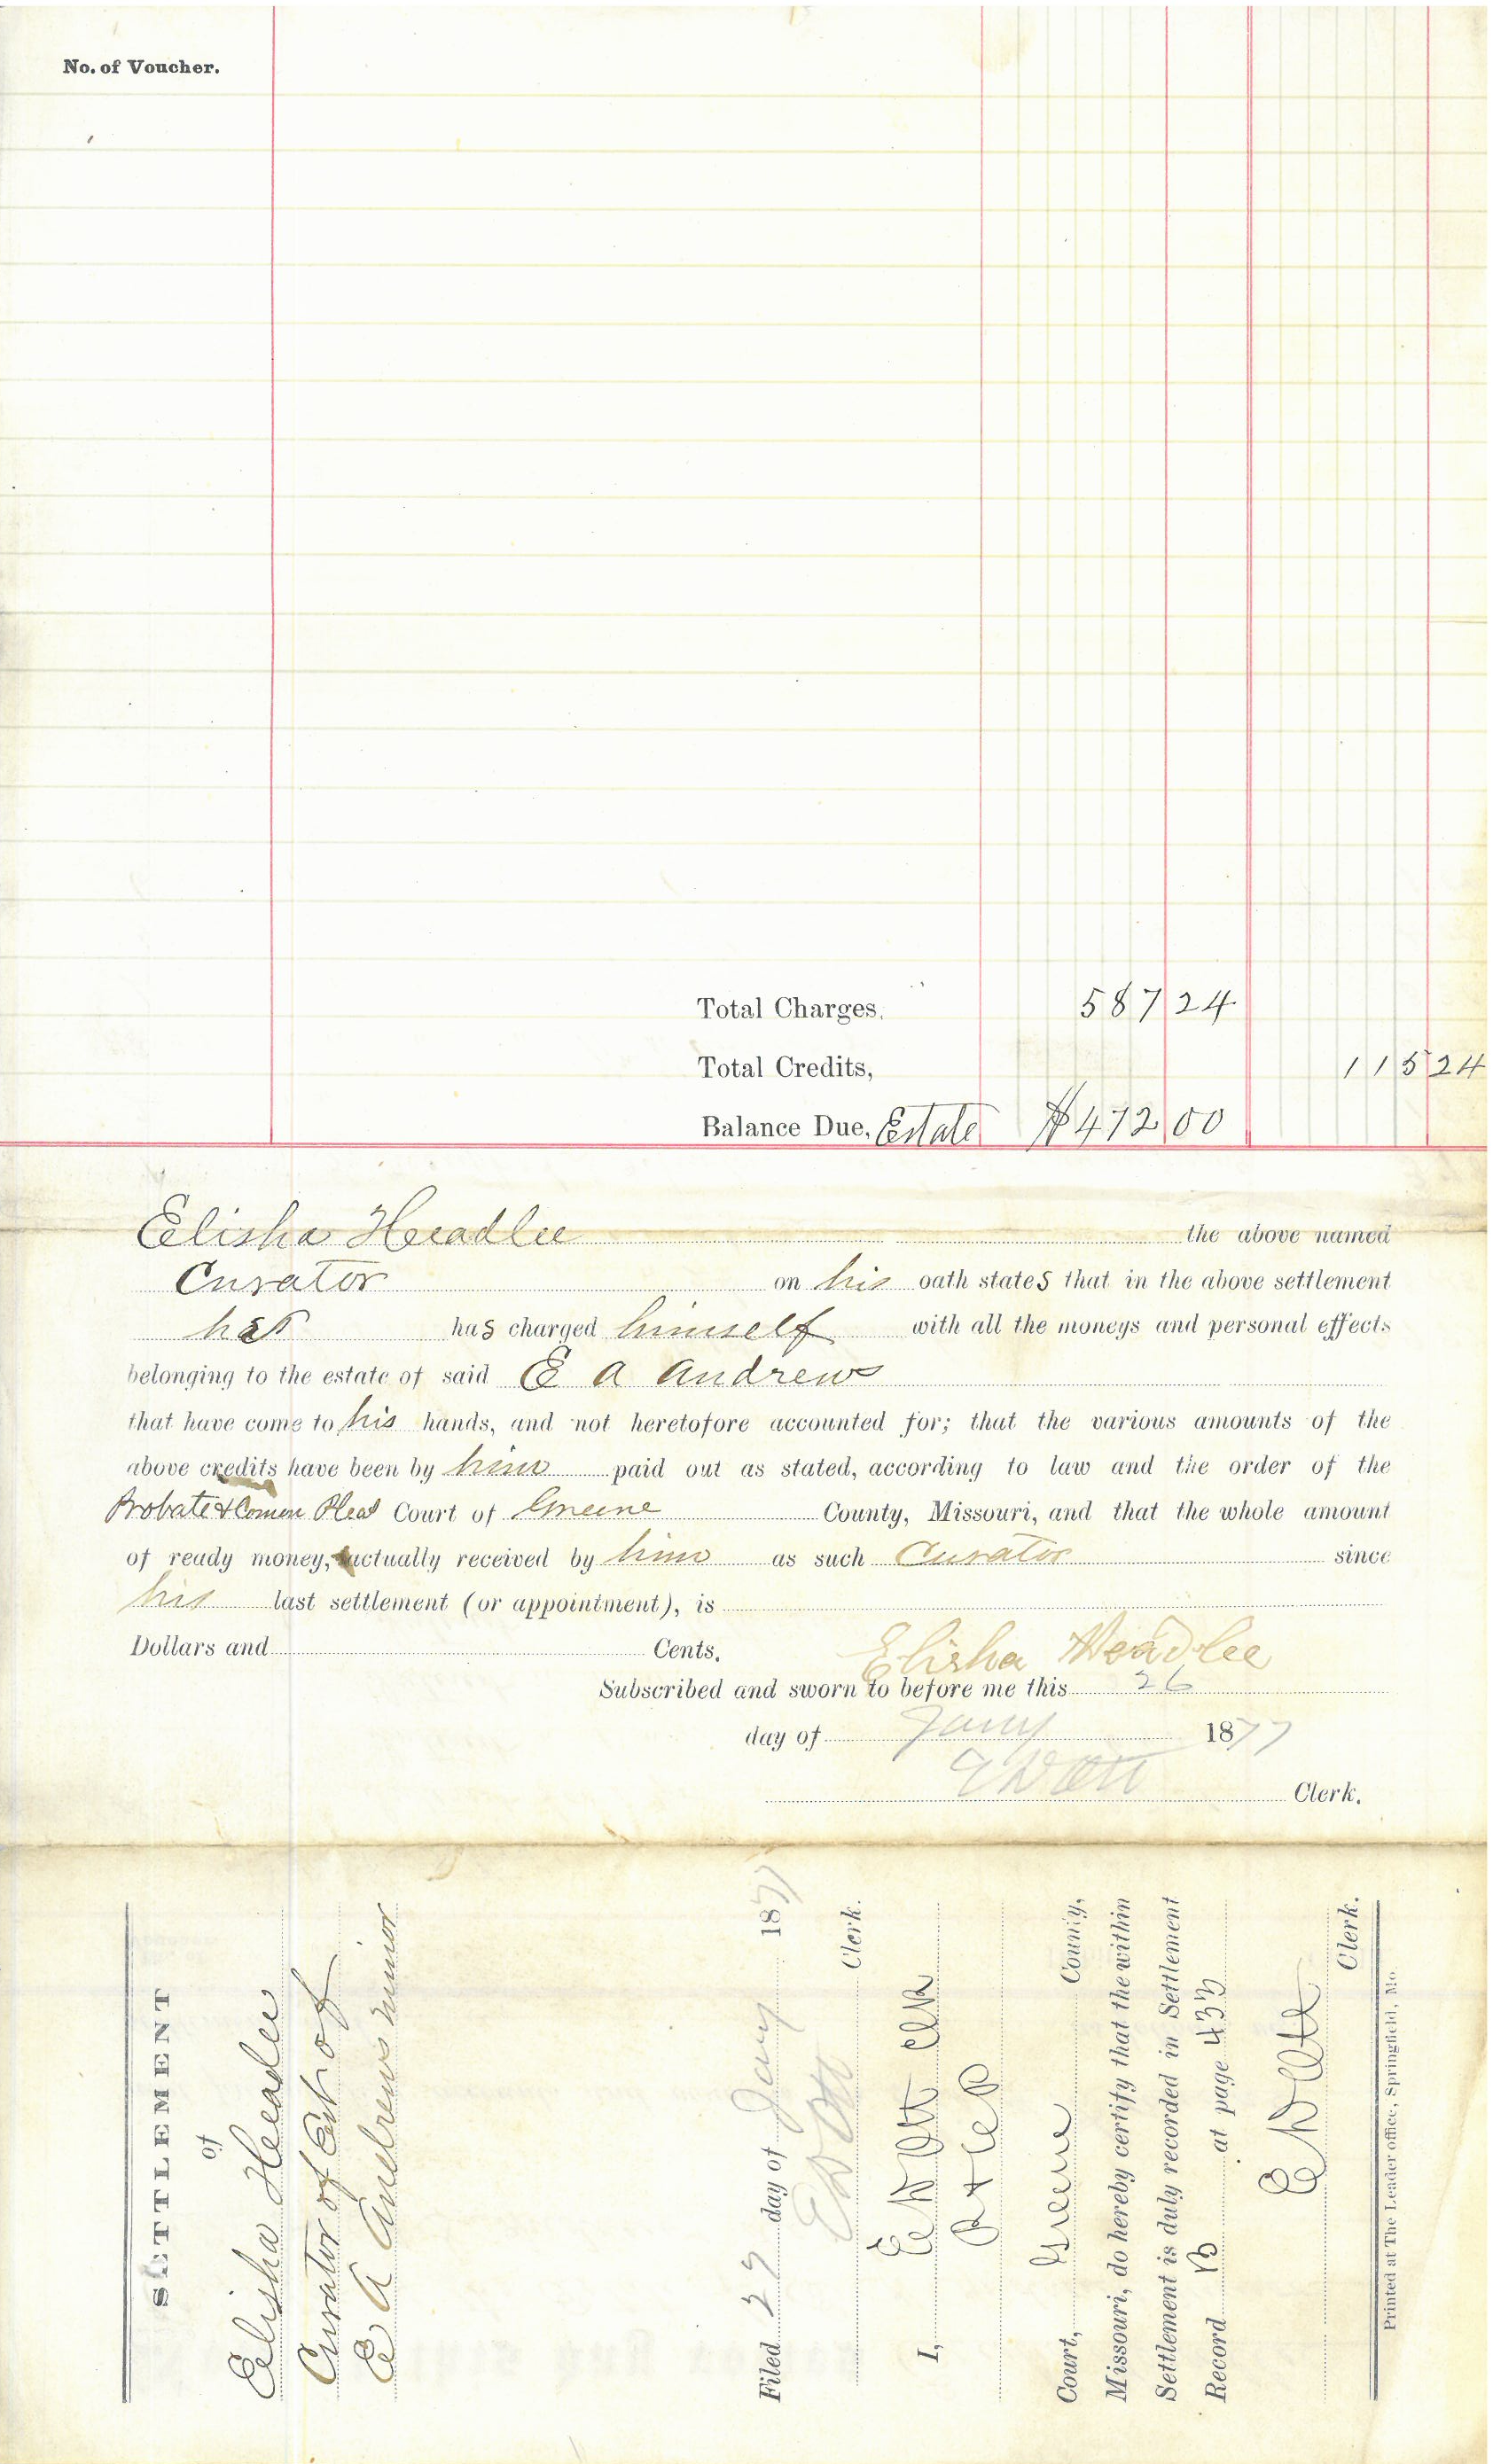 No. of Voucher.
Total Charges, 587 24
Total Credits, 115 24
Balance Due, Estate $472 00
Elisha Headlee the above named
Curator on his oath states that in the above settlement
has has charged himself with all the moneys and personal effects
belonging to the estate of said E A Andrews
that have come to his hands, and not heretofore accounted for; that the various amounts of the
above credits have been by him paid out as stated, according to law and the order of the
Probate & Comon Pleas Court of Greene County, Missouri, and that the whole amount
of ready money, actually received by him as such Curator since
his last settlement (or appointment), is
Dollars and Cents.
Elisha Headlee
Subscribed and sworn to before me this 26
day of Jany 1877
E D Ott
Clerk.
SETTLEMENT
of
Elisha Headlee
Curator of Est of
E A Andrews minor
Filed 27 day of Jany 1877
E D Ott
Clerk.
I, E D Ott Clk
P & C P
Court, Greene County,
Missouri, do hereby certify that the within
Settlement is duly recorded in Settlement
Record B at page 433
E D Ott
Clerk.
Printed at The Leader office, Springfield, Mo.